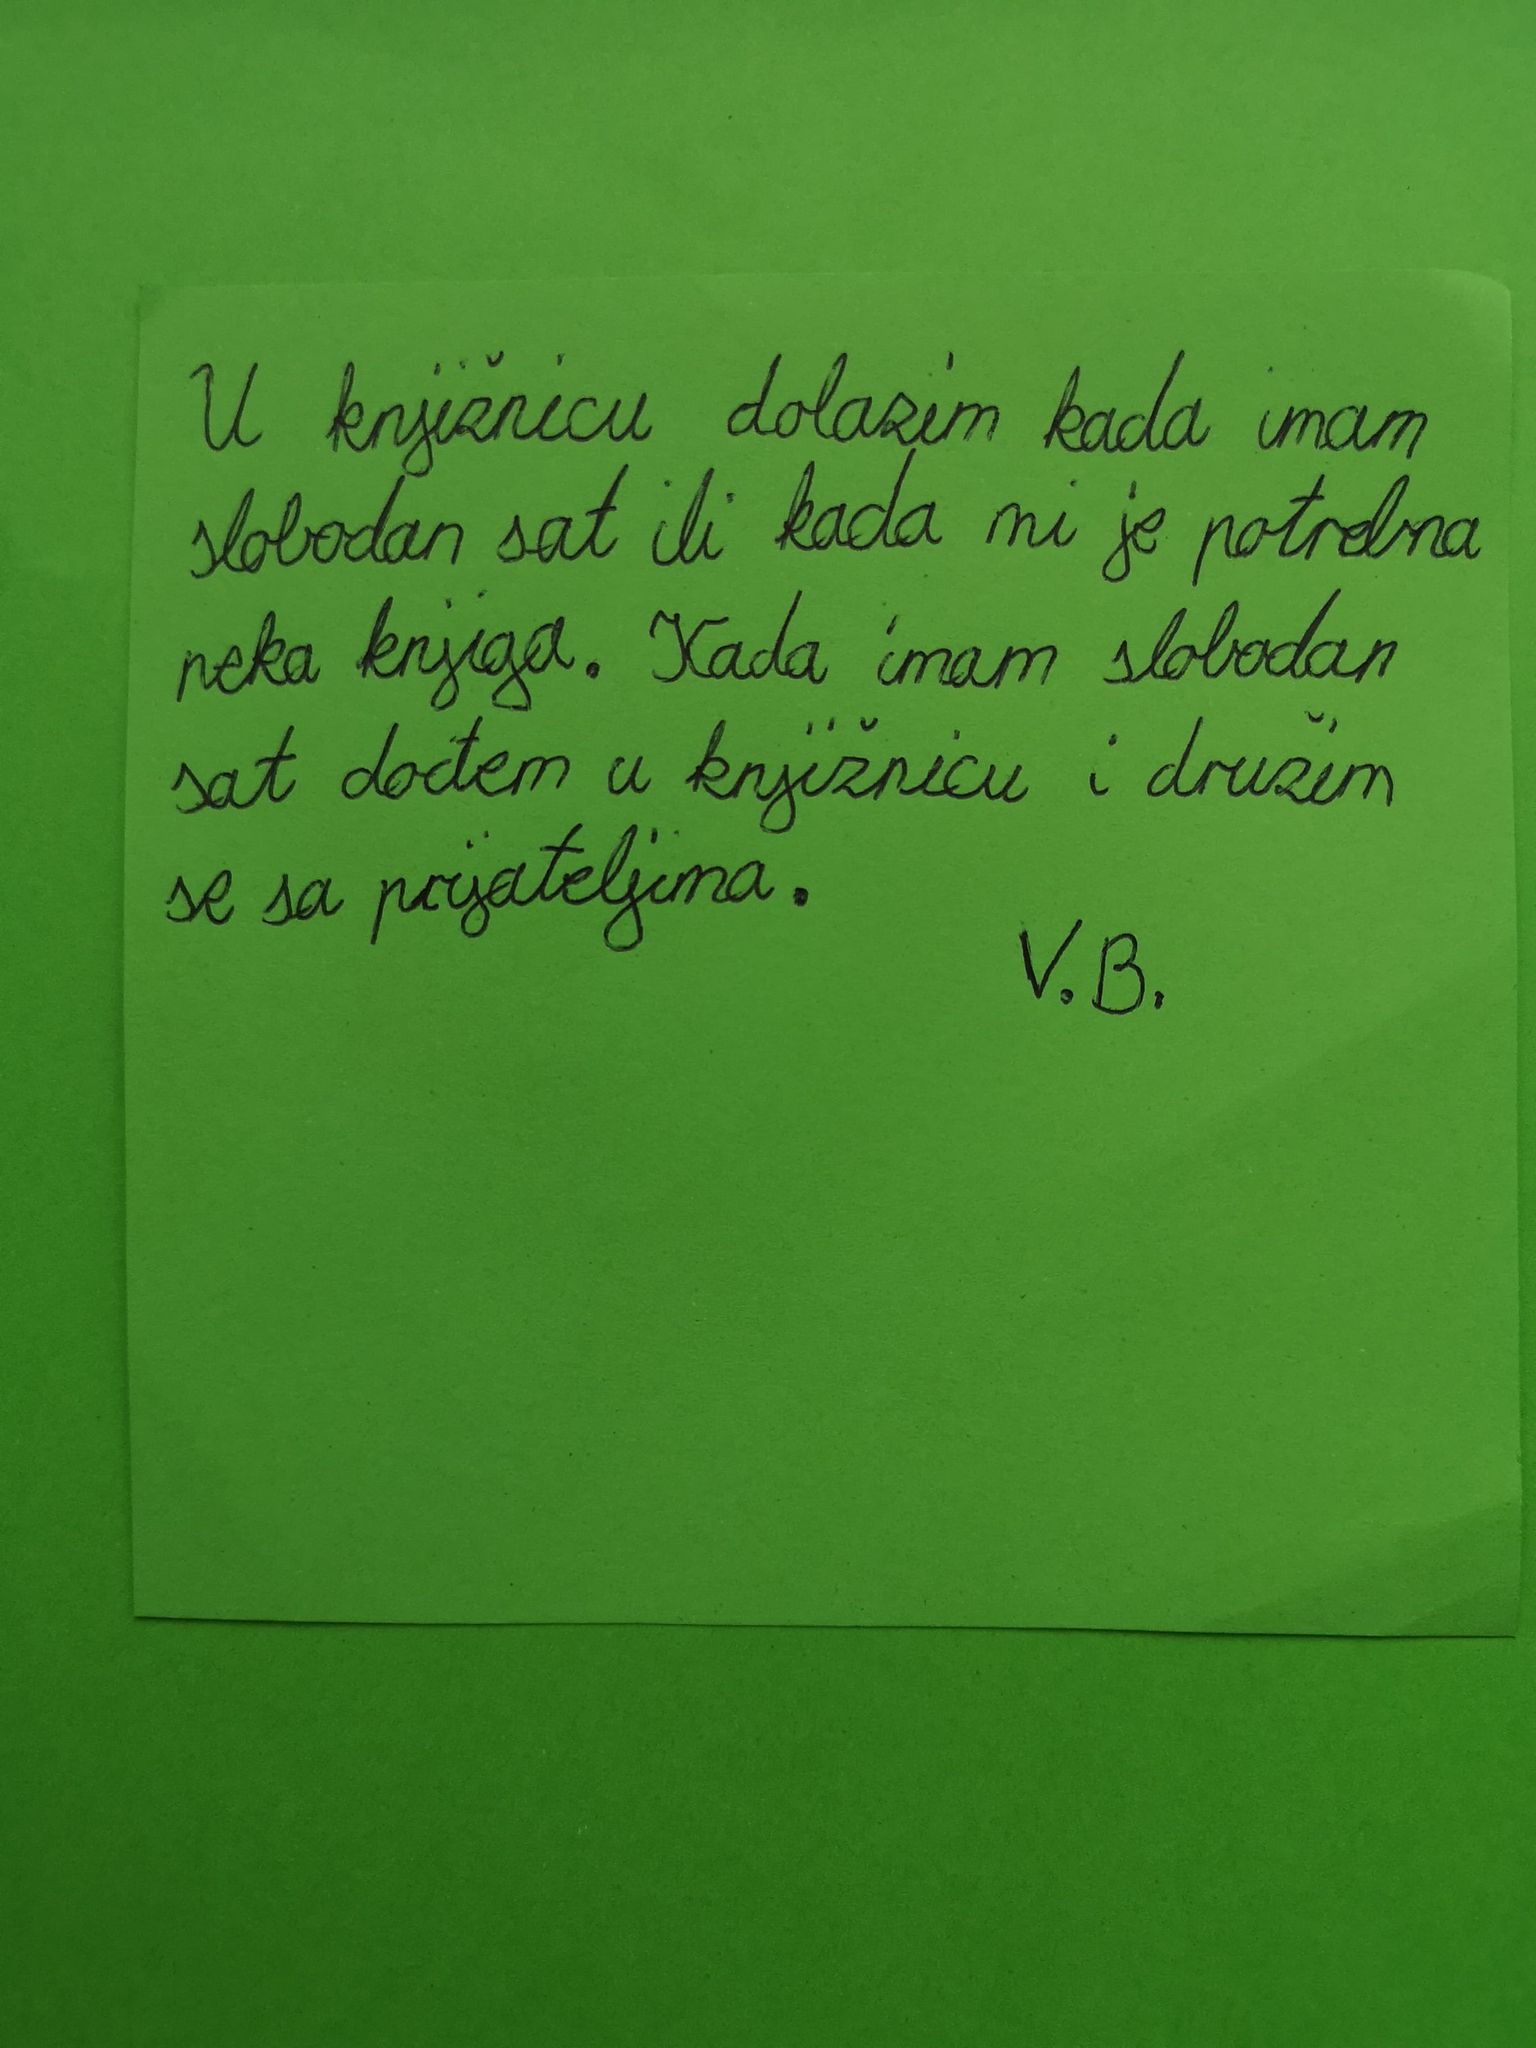 U knjižnicu dolazim kada imam
slobodan sat ili kada mi je potrebna
neka knjiga. Kada imam slobodan
sat dođem u knjižnicu i družim
se sa prijateljima.
V.B.